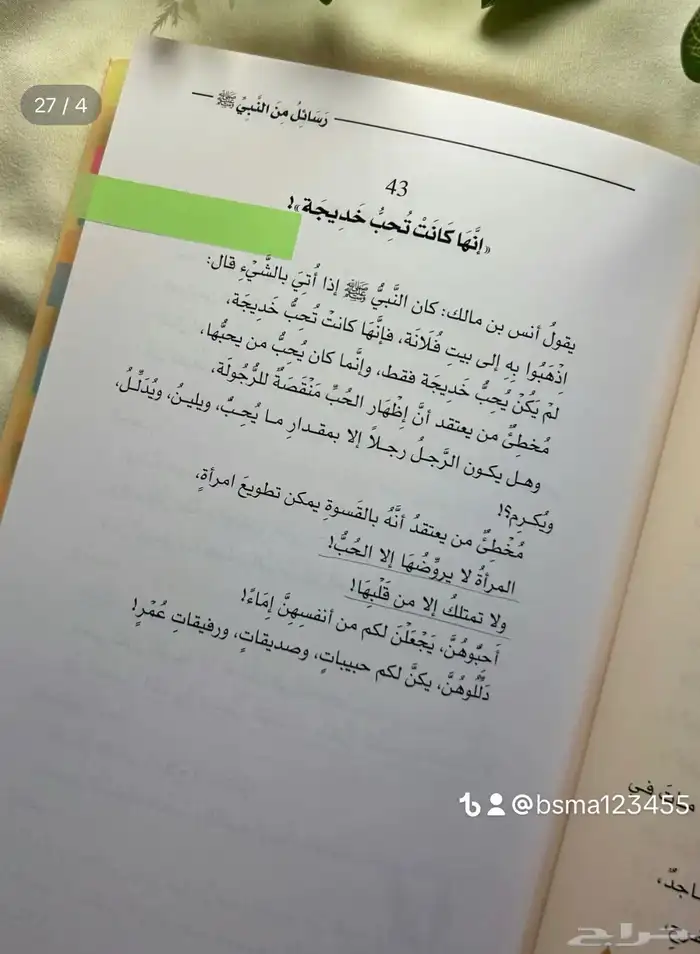 27 / 4
رَسَائِلُ مِنَ النَّبِيِّ ﷺ
43
«إِنَّهَا كَانَتْ تُحِبُّ خَدِيجَة»!
يقولُ أنس بن مالك: كان النَّبيُّ ﷺ إذا أُتيَ بالشَّيْءِ قال:
اِذْهَبُوا بِهِ إلى بيتِ فُلَانَة، فإنَّهَا كانتْ تُحِبُّ خَدِيجَة،
لَمْ يَكُنْ يُحِبُّ خَديجَة فقط، وإنَّما كان يُحِبُّ من يحبُّها،
مُخطِئٌ من يعتقد أنَّ إظْهَار الحُبِّ مَنْقَصَةٌ للرُّجُولَة،
وهـل يكـون الرَّجـلُ رجـلاً إلا بمقـدارِ مـا يُحِبُّ، ويليـنُ، ويُدَلِّـلُ،
ويُكـرِم؟!
مُخْطِئٌ من يعتقدُ أنَّهُ بالقَسوةِ يمكن تطويعَ امرأةٍ،
المرأةُ لا يروِّضُهَا إلا الحُبُّ!
ولا تمتلكُ إلا من قَلْبِهَا!
أَحِبُّوهُنَّ، يَجْعَلْنَ لكم من أنفسِهِنَّ إمَاءً!
دَلِّلُوهُنَّ، يكنَّ لكم حبيباتٍ، وصديقاتٍ، ورفيقاتِ عُمْرٍ!
@bsma123455
في
حراج